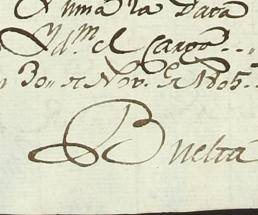 Suma la Data
Yd.^m el Cargo...
30,, de Nov.^e de 1805.
Buelta